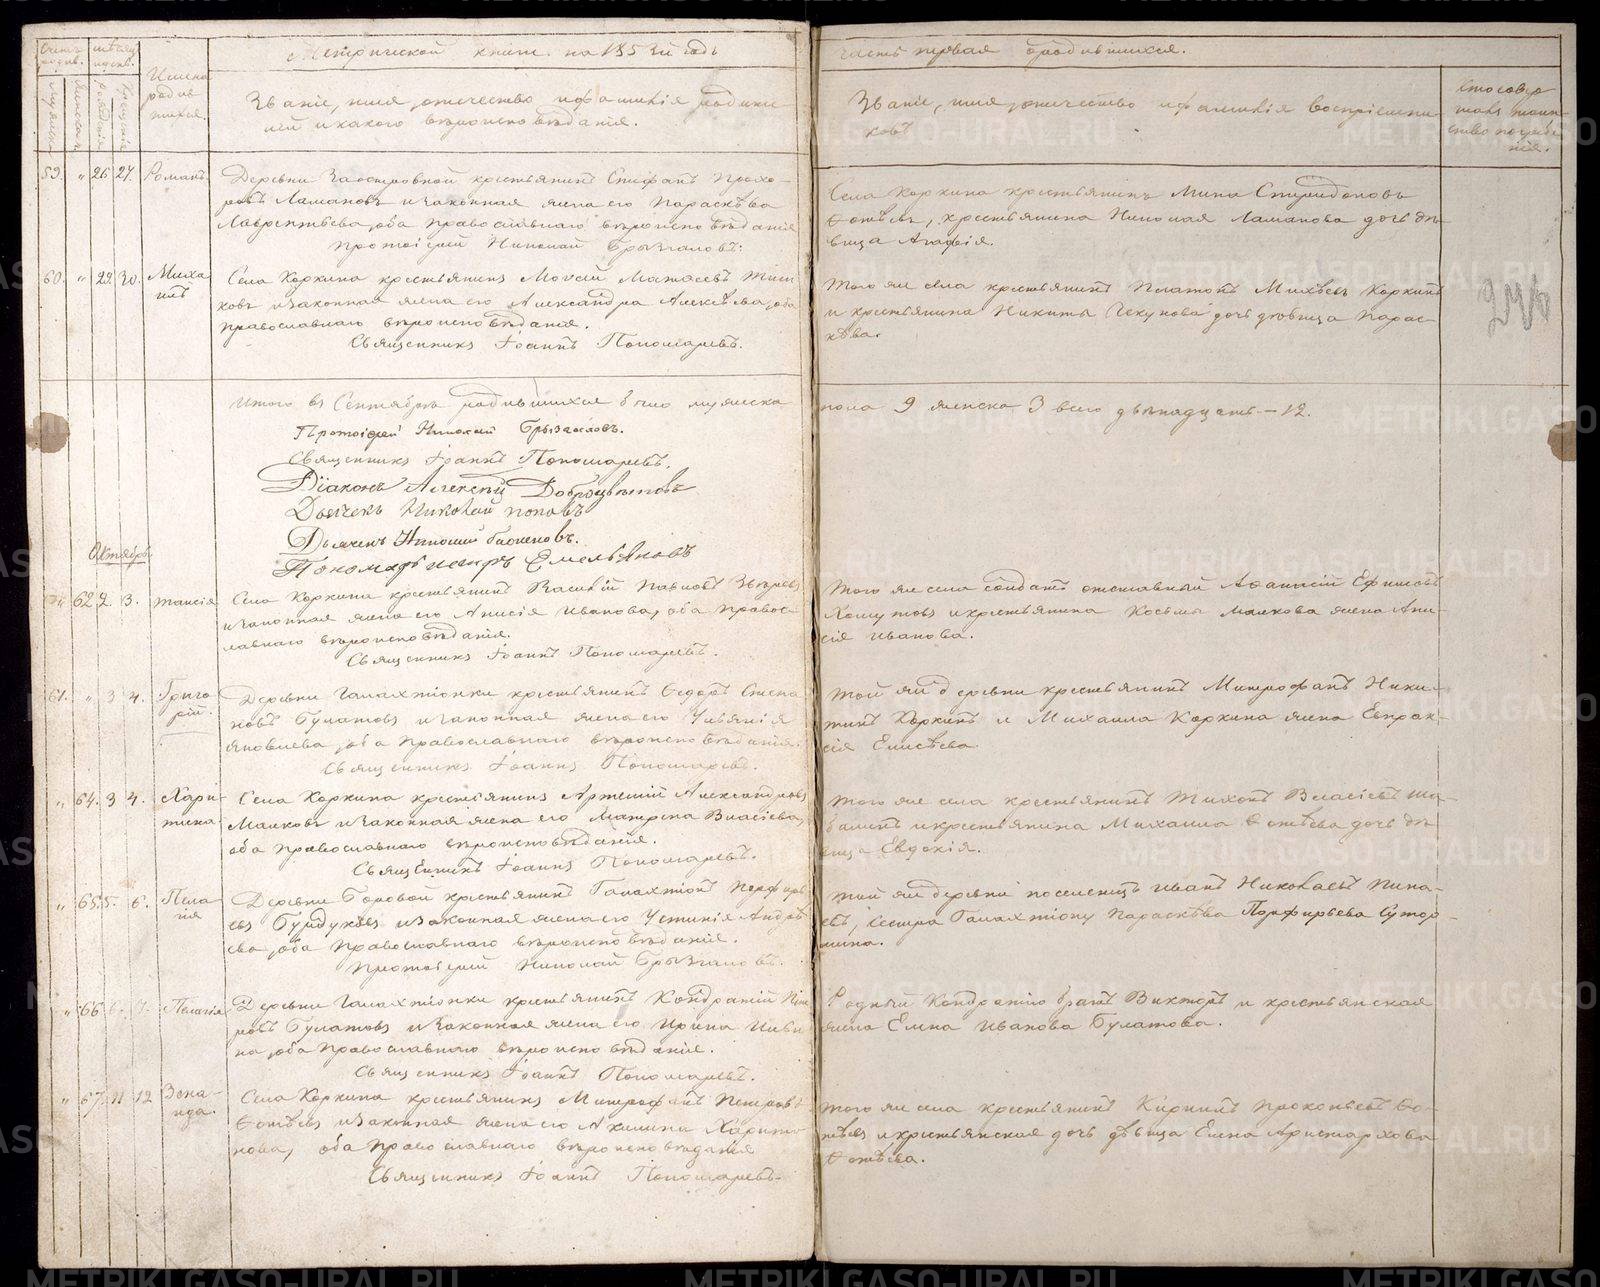 Метрической книги на 185 й годъ
часть первая о родившихся.
Счетъ родив.
мѣсяцъ
Мужеска
Женска
рожденія
крещенія
Имена родив шихся.
Званіе, имя, отечество и фамилія родите
лей и какого вѣроисповѣданія.
Званіе, имя, отечество и фамилія воспріемни-
ковъ
Кто совер
шалъ таин
ство
59. " 26 27. Романъ.
Деревни Заостровной крестьянинъ Епифанъ Прохо-
ровъ Ламановъ и законная жена его Параскѣва
Лаврентьева, оба православнаго вѣроисповѣданія
Протоіерей Николай Брызгаловъ.
Села Коркина крестьянинъ Мина Спиридоновъ
Фотѣевъ, крестьянина Николая Ламанова дочь дѣ
вица Агафія.
60. " 29. 30. Миха
илъ
Села Коркина крестьянинъ Моѵсей Матѳеевъ
ковъ и законная жена его Александра Алексѣева, оба
православнаго вѣроисповѣданія.
Священникъ Іоаннъ Пономаревъ.
Того же села крестьянинъ Платонъ Михѣевъ Коркинъ
и крестьянина Никиты Чекунова дочь дѣвица Парас-
кѣва.
Итого въ Сентябрѣ родившихся было мужеска
пола 9 женска 3 всего двѣнадцать – 12.
Протоіерей Николай Брызгаловъ.
Священникъ Іоаннъ Пономаревъ.
Діаконъ Алексѣй Доброцвѣтовъ
Дьячекъ Николай Поповъ
Дьячекъ Николай
Пономарь Петръ Емельяновъ
Октябрь
" 62 2. 3. Таисія
Села Коркина крестьянинъ Василій Павловъ Звѣревъ
и законная жена его Анисія Иванова, оба правос
лавнаго вѣроисповѣданія.
Священникъ Іоаннъ Пономаревъ.
Того же села солдатъ отставный Аѳанасій Ефимовъ
Хомутовъ и крестьянина Косьмы Малкова жена Ани
сія Иванова.
61. " 3 4. Григо
рій.
Деревни Галахтіонки крестьянинъ Ѳедоръ Степа
новъ Булатовъ и законная жена его Уліянія
Яковлева, оба православнаго вѣроисповѣданія.
Священникъ Іоаннъ Пономаревъ.
Той же деревни крестьянинъ Митрофанъ Ники-
тинъ Коркинъ и Михаила Коркина жена Евпрак-
сія Елисѣева
" 64. 3 4. Хари-
тина
Села Коркина крестьянинъ Артемій Александровъ
Малковъ и законная жена его Матрена Власіева,
оба православнаго вѣроисповѣданія.
Священникъ Іоаннъ Пономаревъ.
Того же села крестьянинъ Тихонъ Власіевъ Ша-
балинъ и крестьянина Михаила Фотѣева дочь дѣ
вица Евдокія.
" 65. 5. 6. Пела-
гія
Деревни Боровой крестьянинъ Галахтіонъ Перфирь
евъ и законная жена его Устинія Андрѣ
ева, оба православнаго вѣроисповѣданія.
Протоіерей Николай Брызгаловъ.
Той же деревни поселенецъ Иванъ Николаевъ Пина-
евъ, сестра Галахтіону Параскѣва Порфирьева Сутор-
мина.
" 66. 6. 7. Пелагія
Деревни Галахтіонки крестьянинъ Кондратій
ровъ Булатовъ и законная жена его Ирина
на, оба православнаго вѣроисповѣданія.
Священникъ Іоаннъ Пономаревъ.
Родный Кондратію братъ Викторъ и крестьянская
жена Елена Иванова Булатова.
" 67. 11 12 Зена-
ида.
Села Коркина крестьянинъ Митрофанъ Петровъ
Фотѣевъ и законная жена его Акилина Харито
нова, оба православнаго вѣроисповѣданія
Священникъ Іоаннъ Пономаревъ.
Того же села крестьянинъ Кирилъ Прокопьевъ Фо-
тѣевъ и крестьянская дочь дѣвица Елена Аристархова
Фотѣева.
METRIKI.GASO-URAL.RU